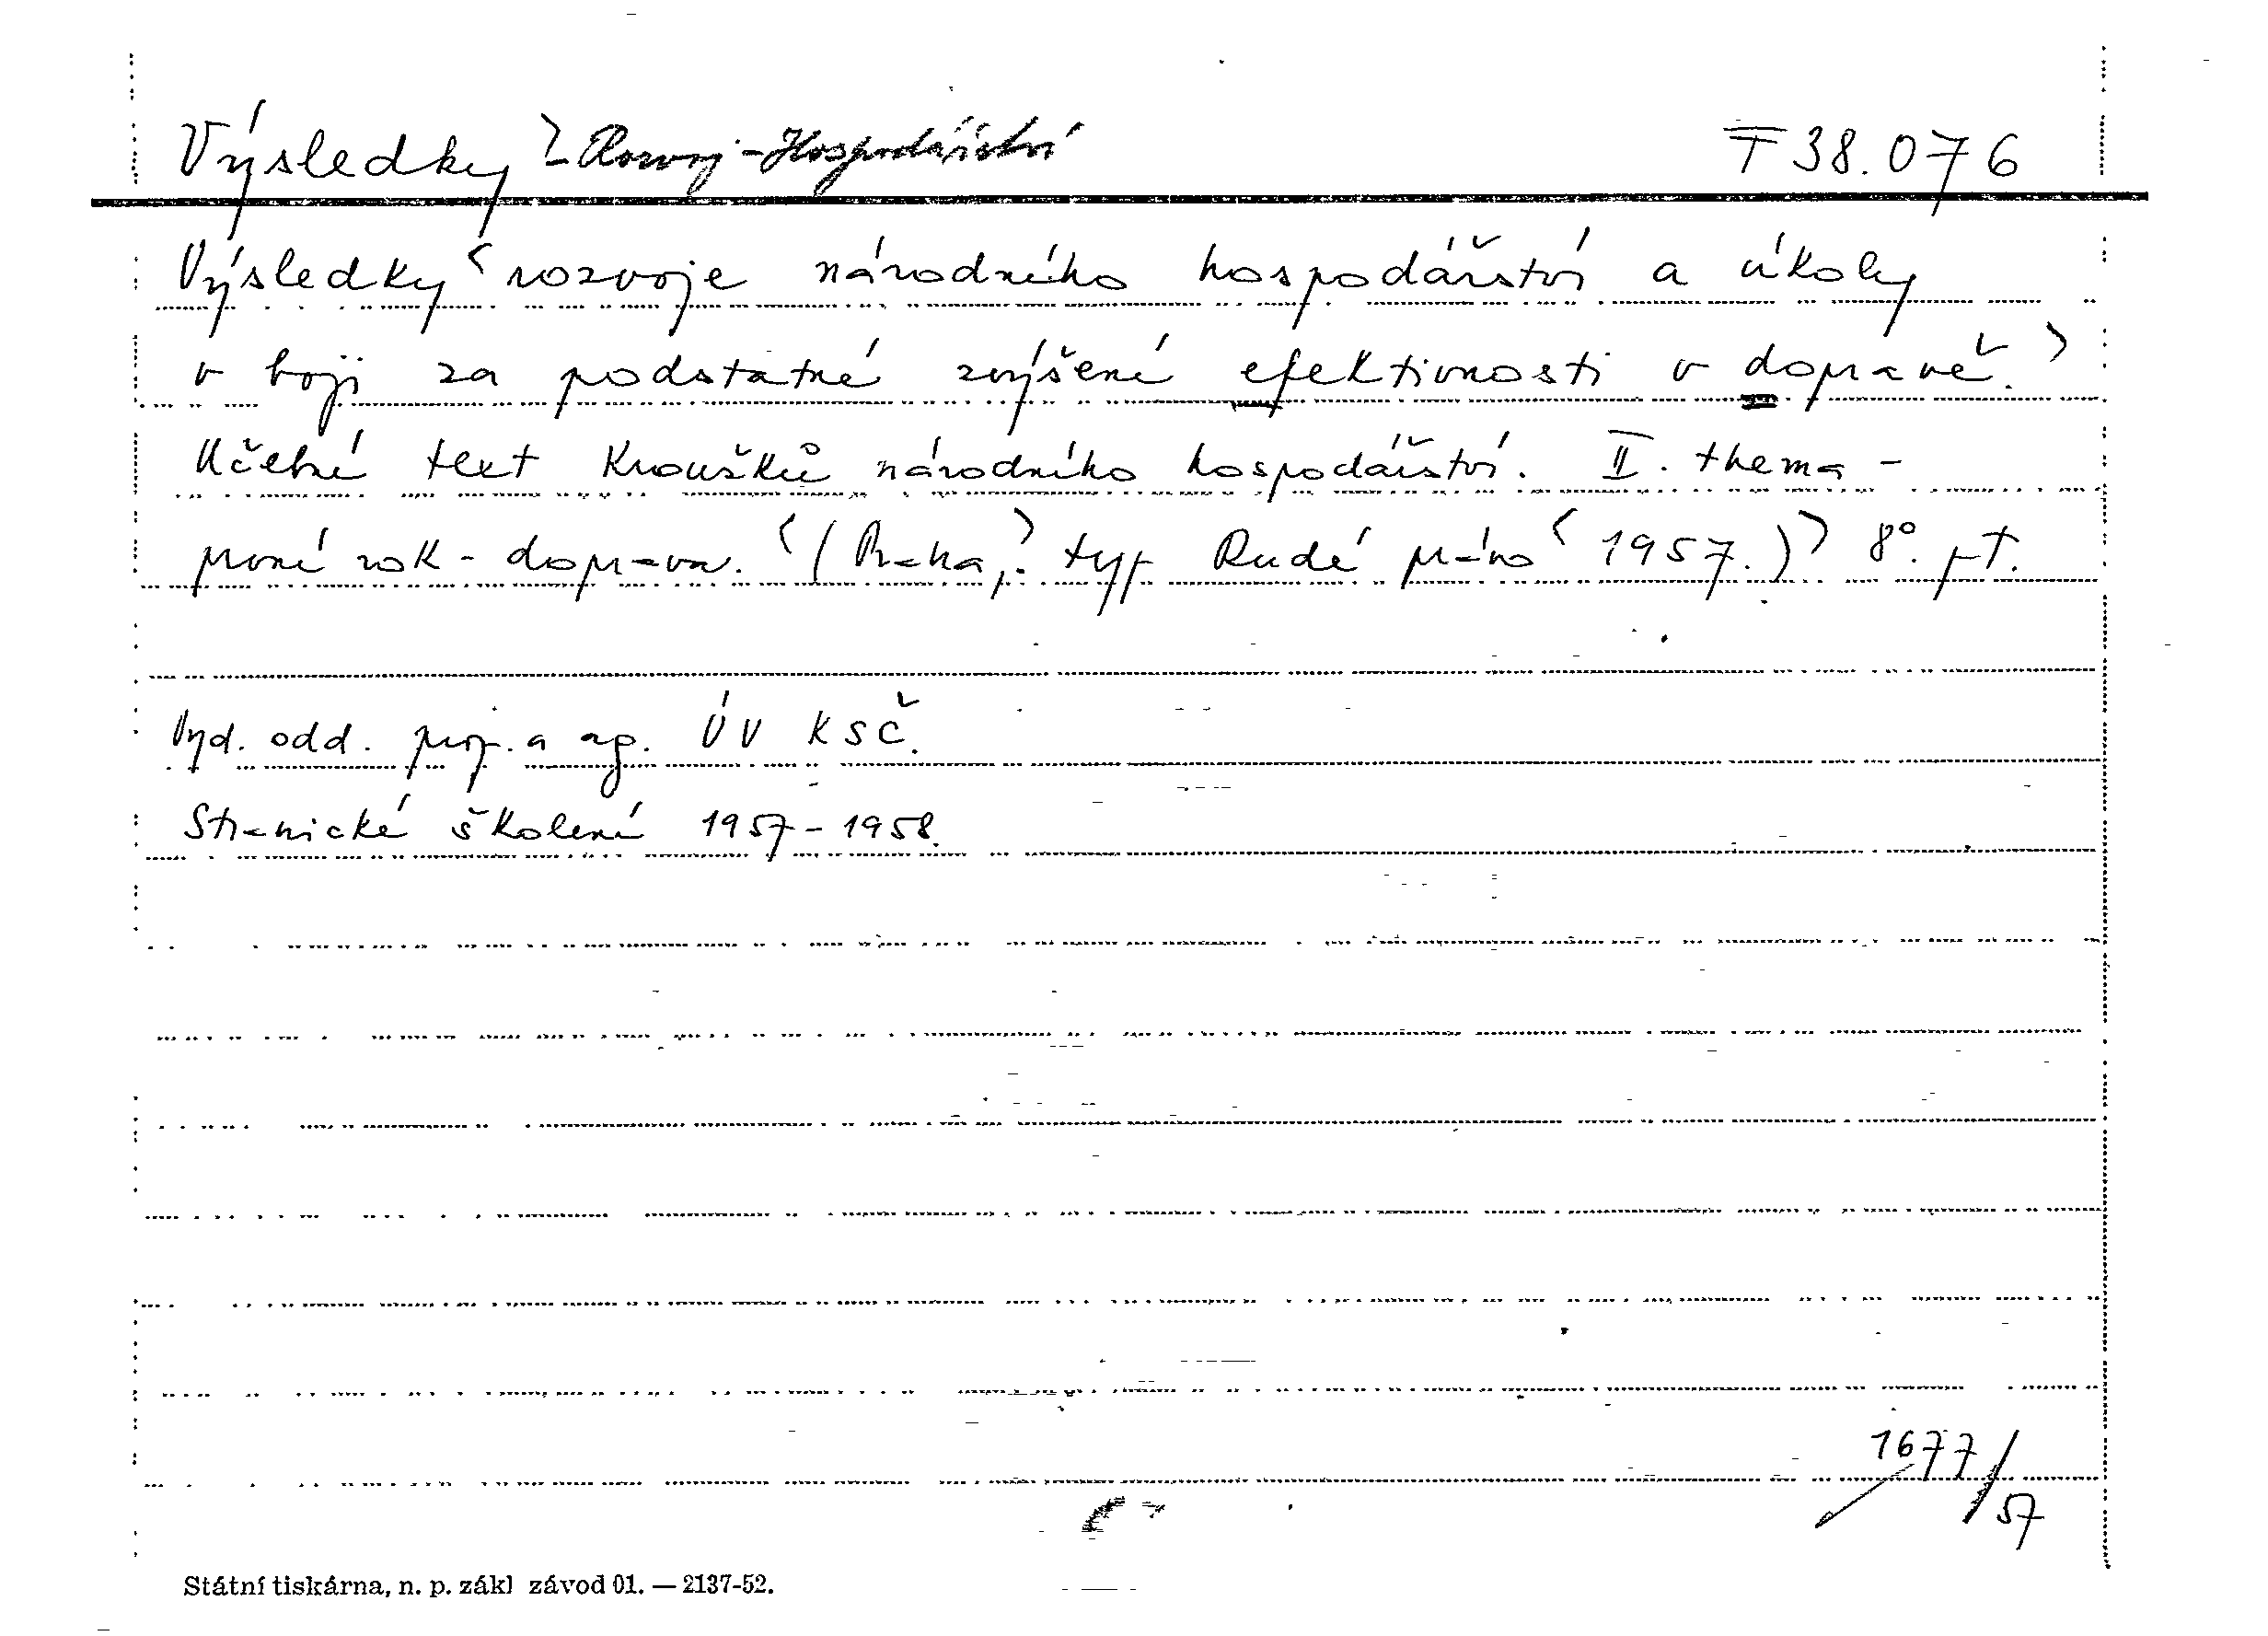 Výsledky > - Rozvoj - Hospodářství T 38.076
Výsledky < rozvoje národního hospodářství a úkoly
v boji za podstatné zvýšení efektivnosti v dopravě. >
Učební text kroužků národního hospodářství. II. thema -
první rok - doprava. < (Praha, > typ Rudé právo < 1957.) > 8°. pT.
Vyd. odd. prop. a ag. ÚV KSČ.
Stranické školení 1957-1958.
1677/57
Státní tiskárna, n. p. zákl závod 01. — 2137-52.